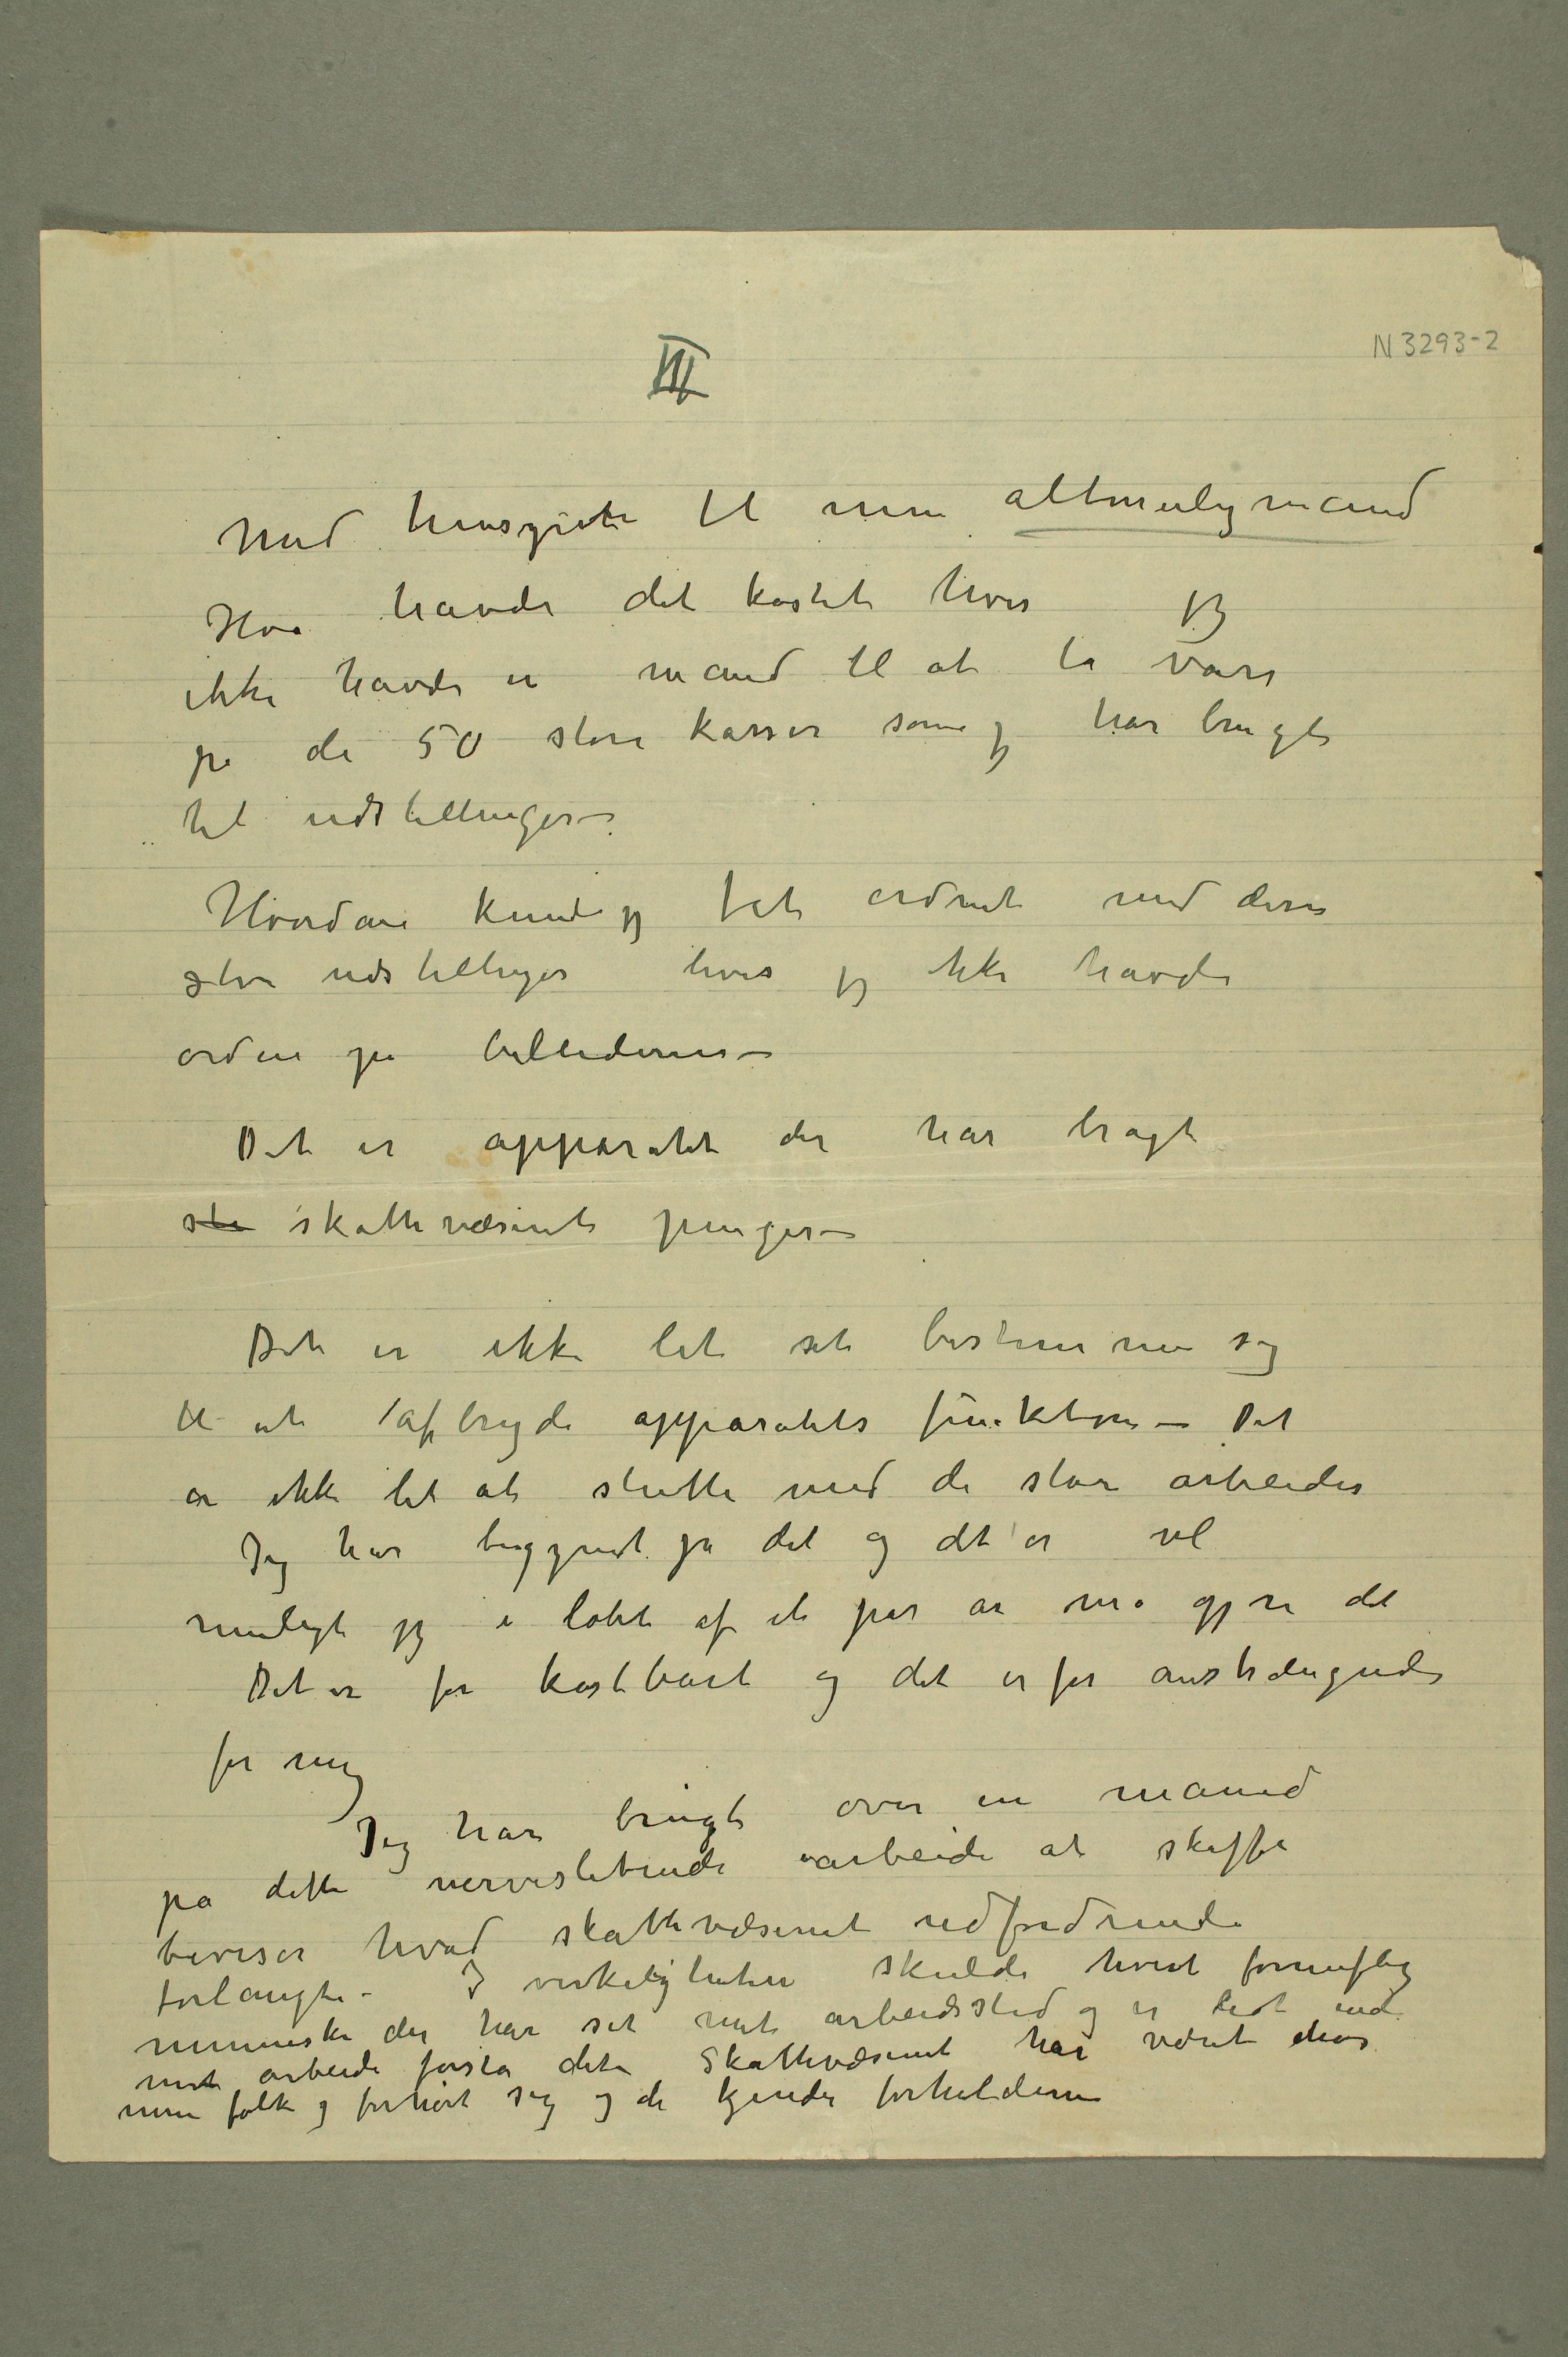 N 3293-2
III
Med hensyn til min altmuligmand
Hva havde det kostet hvis jeg
ikke havde en mand til at ta vare
på de 50 store kasser som jeg har brugt
til udstillinger –
Hvordan kunde jeg fåt ordnet med disse
store udstillinger hvis jeg ikke havde
orden på billederne –
Det er apparatet der har bragt
ste skattevæsenet penger –
Det er ikke let at bestemme sig
til at afbryde apparatets funktion – Det
er ikke let at slutte med de store arbeider
Jeg har begyndt på det og det er vel
muligt jeg i løbet af et par år må gjøre det
Det er for kostbart og det er for anstrængende
for mig
Jeg har brugt over en måned
på dette nerveslidende arbeide at skaffe
beviser hvad skattevæsenet udfordrende
forlangte – I virkeligheten skulde hvert fornuftig
menneske der har set mit arbeidssted og er
mit arbeide forstå det Skattevæsenet har været hos
mine folk og forhørt sig og de kjender forholdene